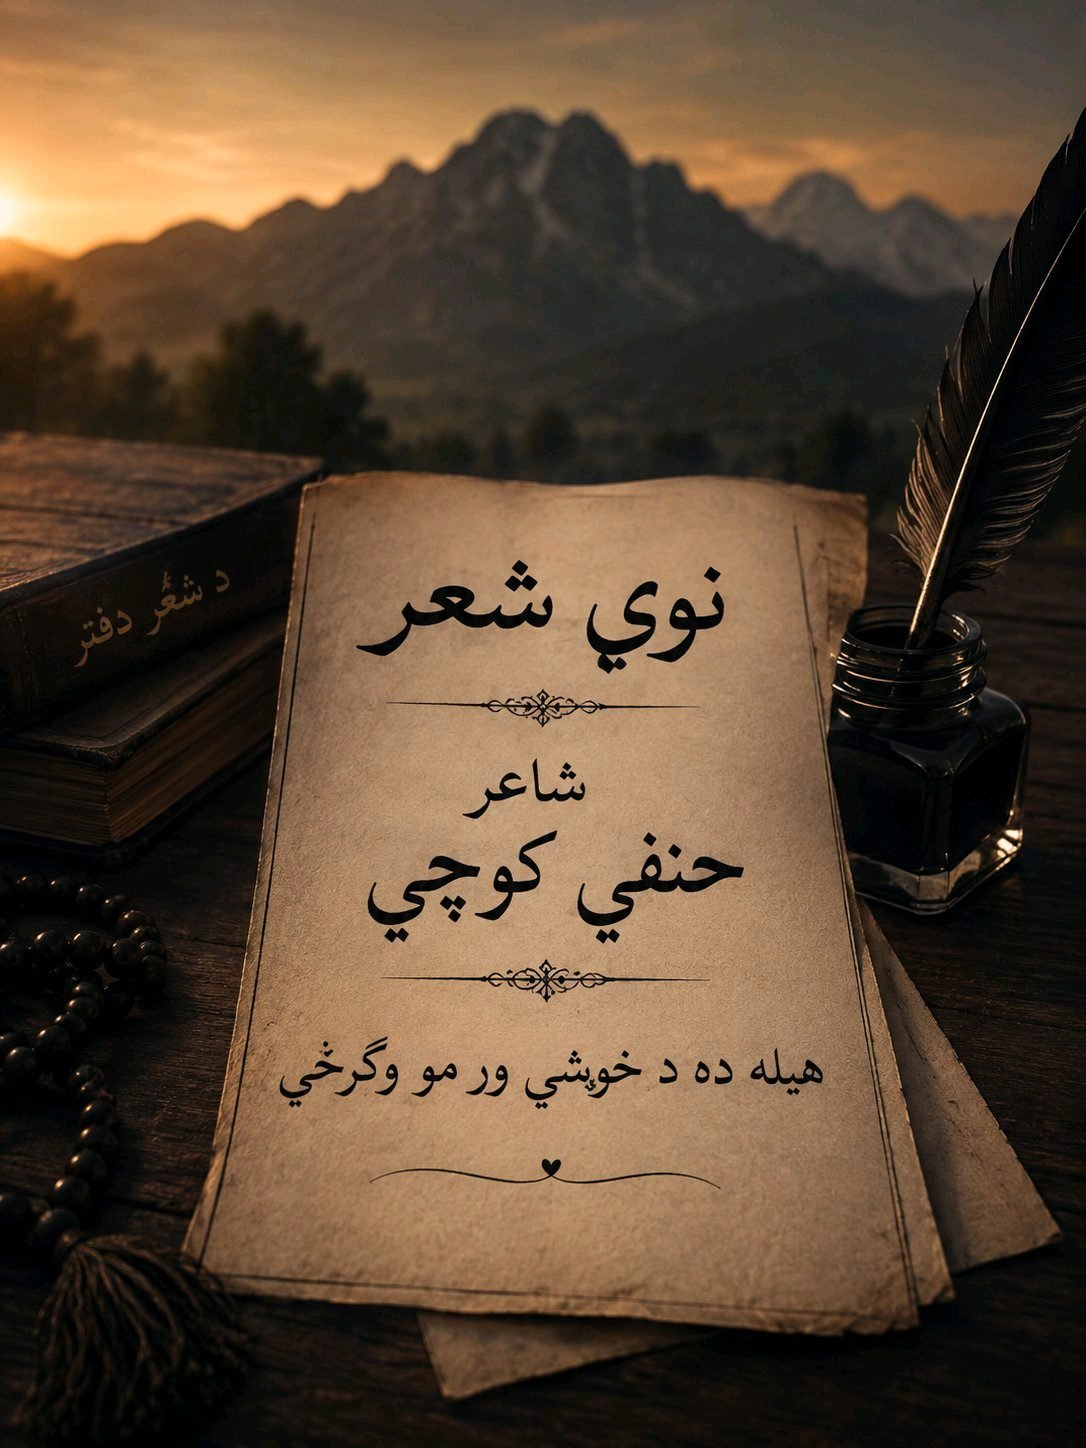 نوي شعر
شاعر
حنفي کوچي
هيله ده د خوښي ور مو وګرځي
د شعر دفتر